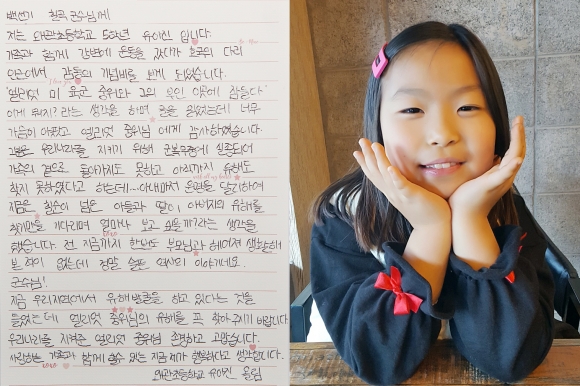 백선기 칠곡 군수님께
저는 왜관초등학교 5학년 유아진 입니다.
가족과 함께 강변에 운동을 갔다가 호국의 다리
인근에서 감동의 기념비를 보게 되었습니다.
'엘리엇 미 육군 중위와 그의 부인 이곳에 잠들다'
이게 뭐지? 라는 생각을 하며 글을 읽었는데 너무
가슴이 아팠고 엘리엇 중위님 에게 감사하였습니다.
그분은 우리나라를 지키기 위해 군복무중에 실종되어
가족의 곁으로 돌아가지도 못하고 아직까지 유해도
찾지 못하였다고 하는데... 아내마저 운명을 달리하여
지금은 환순이 넘은 아들과 딸이 아버지의 유해를
찾기만을 기다리며 얼마나 보고 싶을까? 라는 생각을
했습니다. 전 지금까지 한번도 부모님과 헤어져 생활해
본 적이 없는데 정말 슬픈 역사의 이야기네요.
군수님!
지금 우리지역에서 유해발굴을 하고 있다는 것을
들었는데 엘리엇 중위님의 유해를 꼭 찾아 주시기 바랍니다.
우리나라를 지켜준 엘리엇 중위님 존경하고 고맙습니다.
사랑하는 가족과 함께 할수 있는 지금 제가 행복하다고 생각합니다.
왜관초등학교 유아진 올림